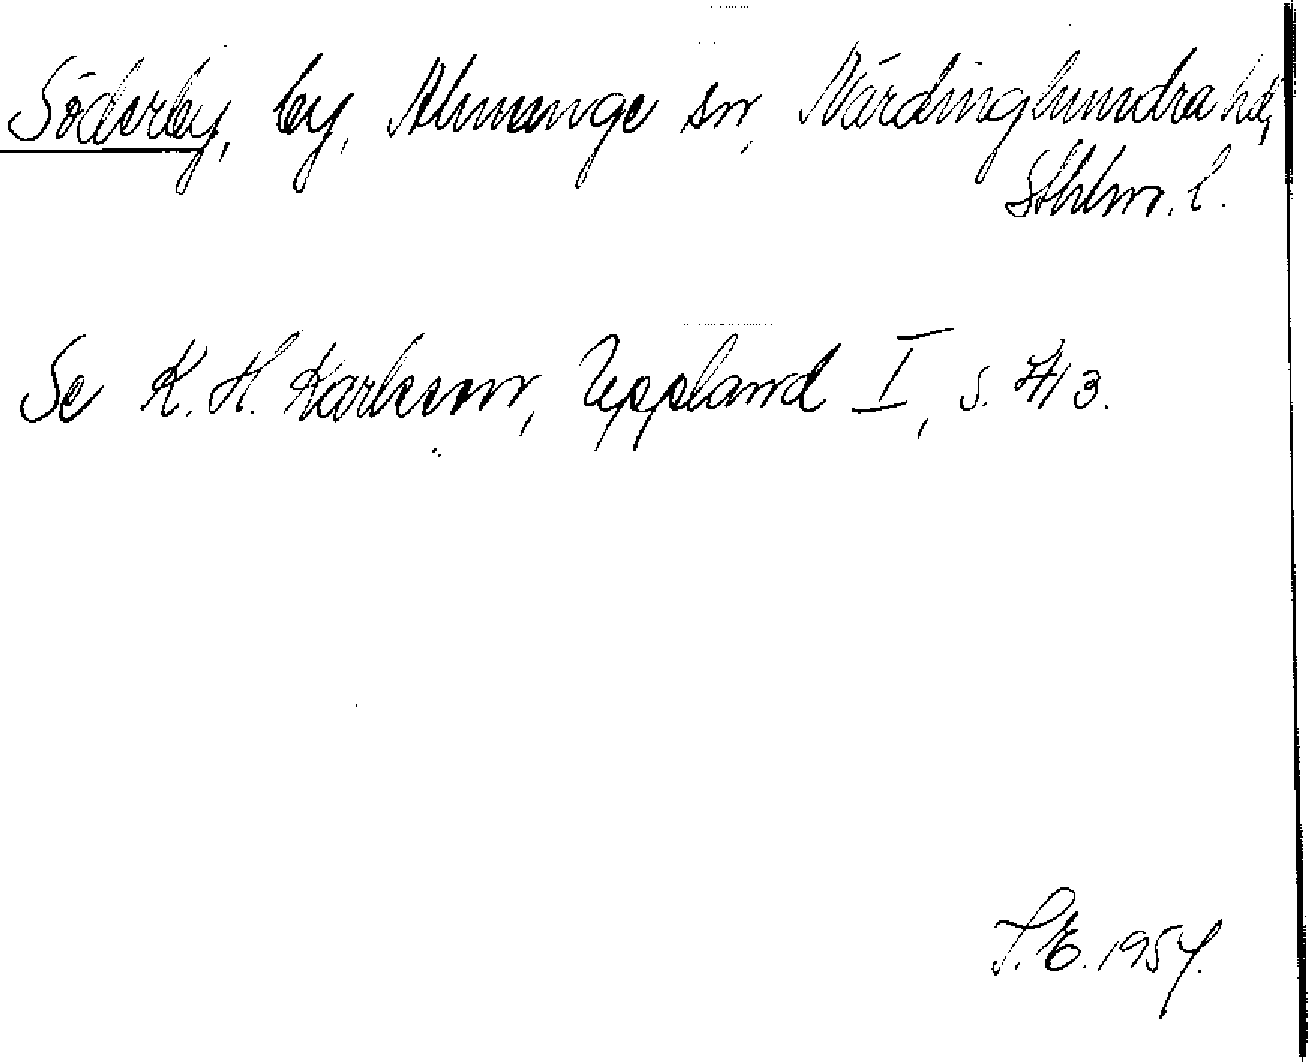 Söderby, by, Almunge sn, Närdinghundra hd,
Sthlm. l.
Se K. H. Karlsson, Uppland I, s. 413.
S. E. 1954.